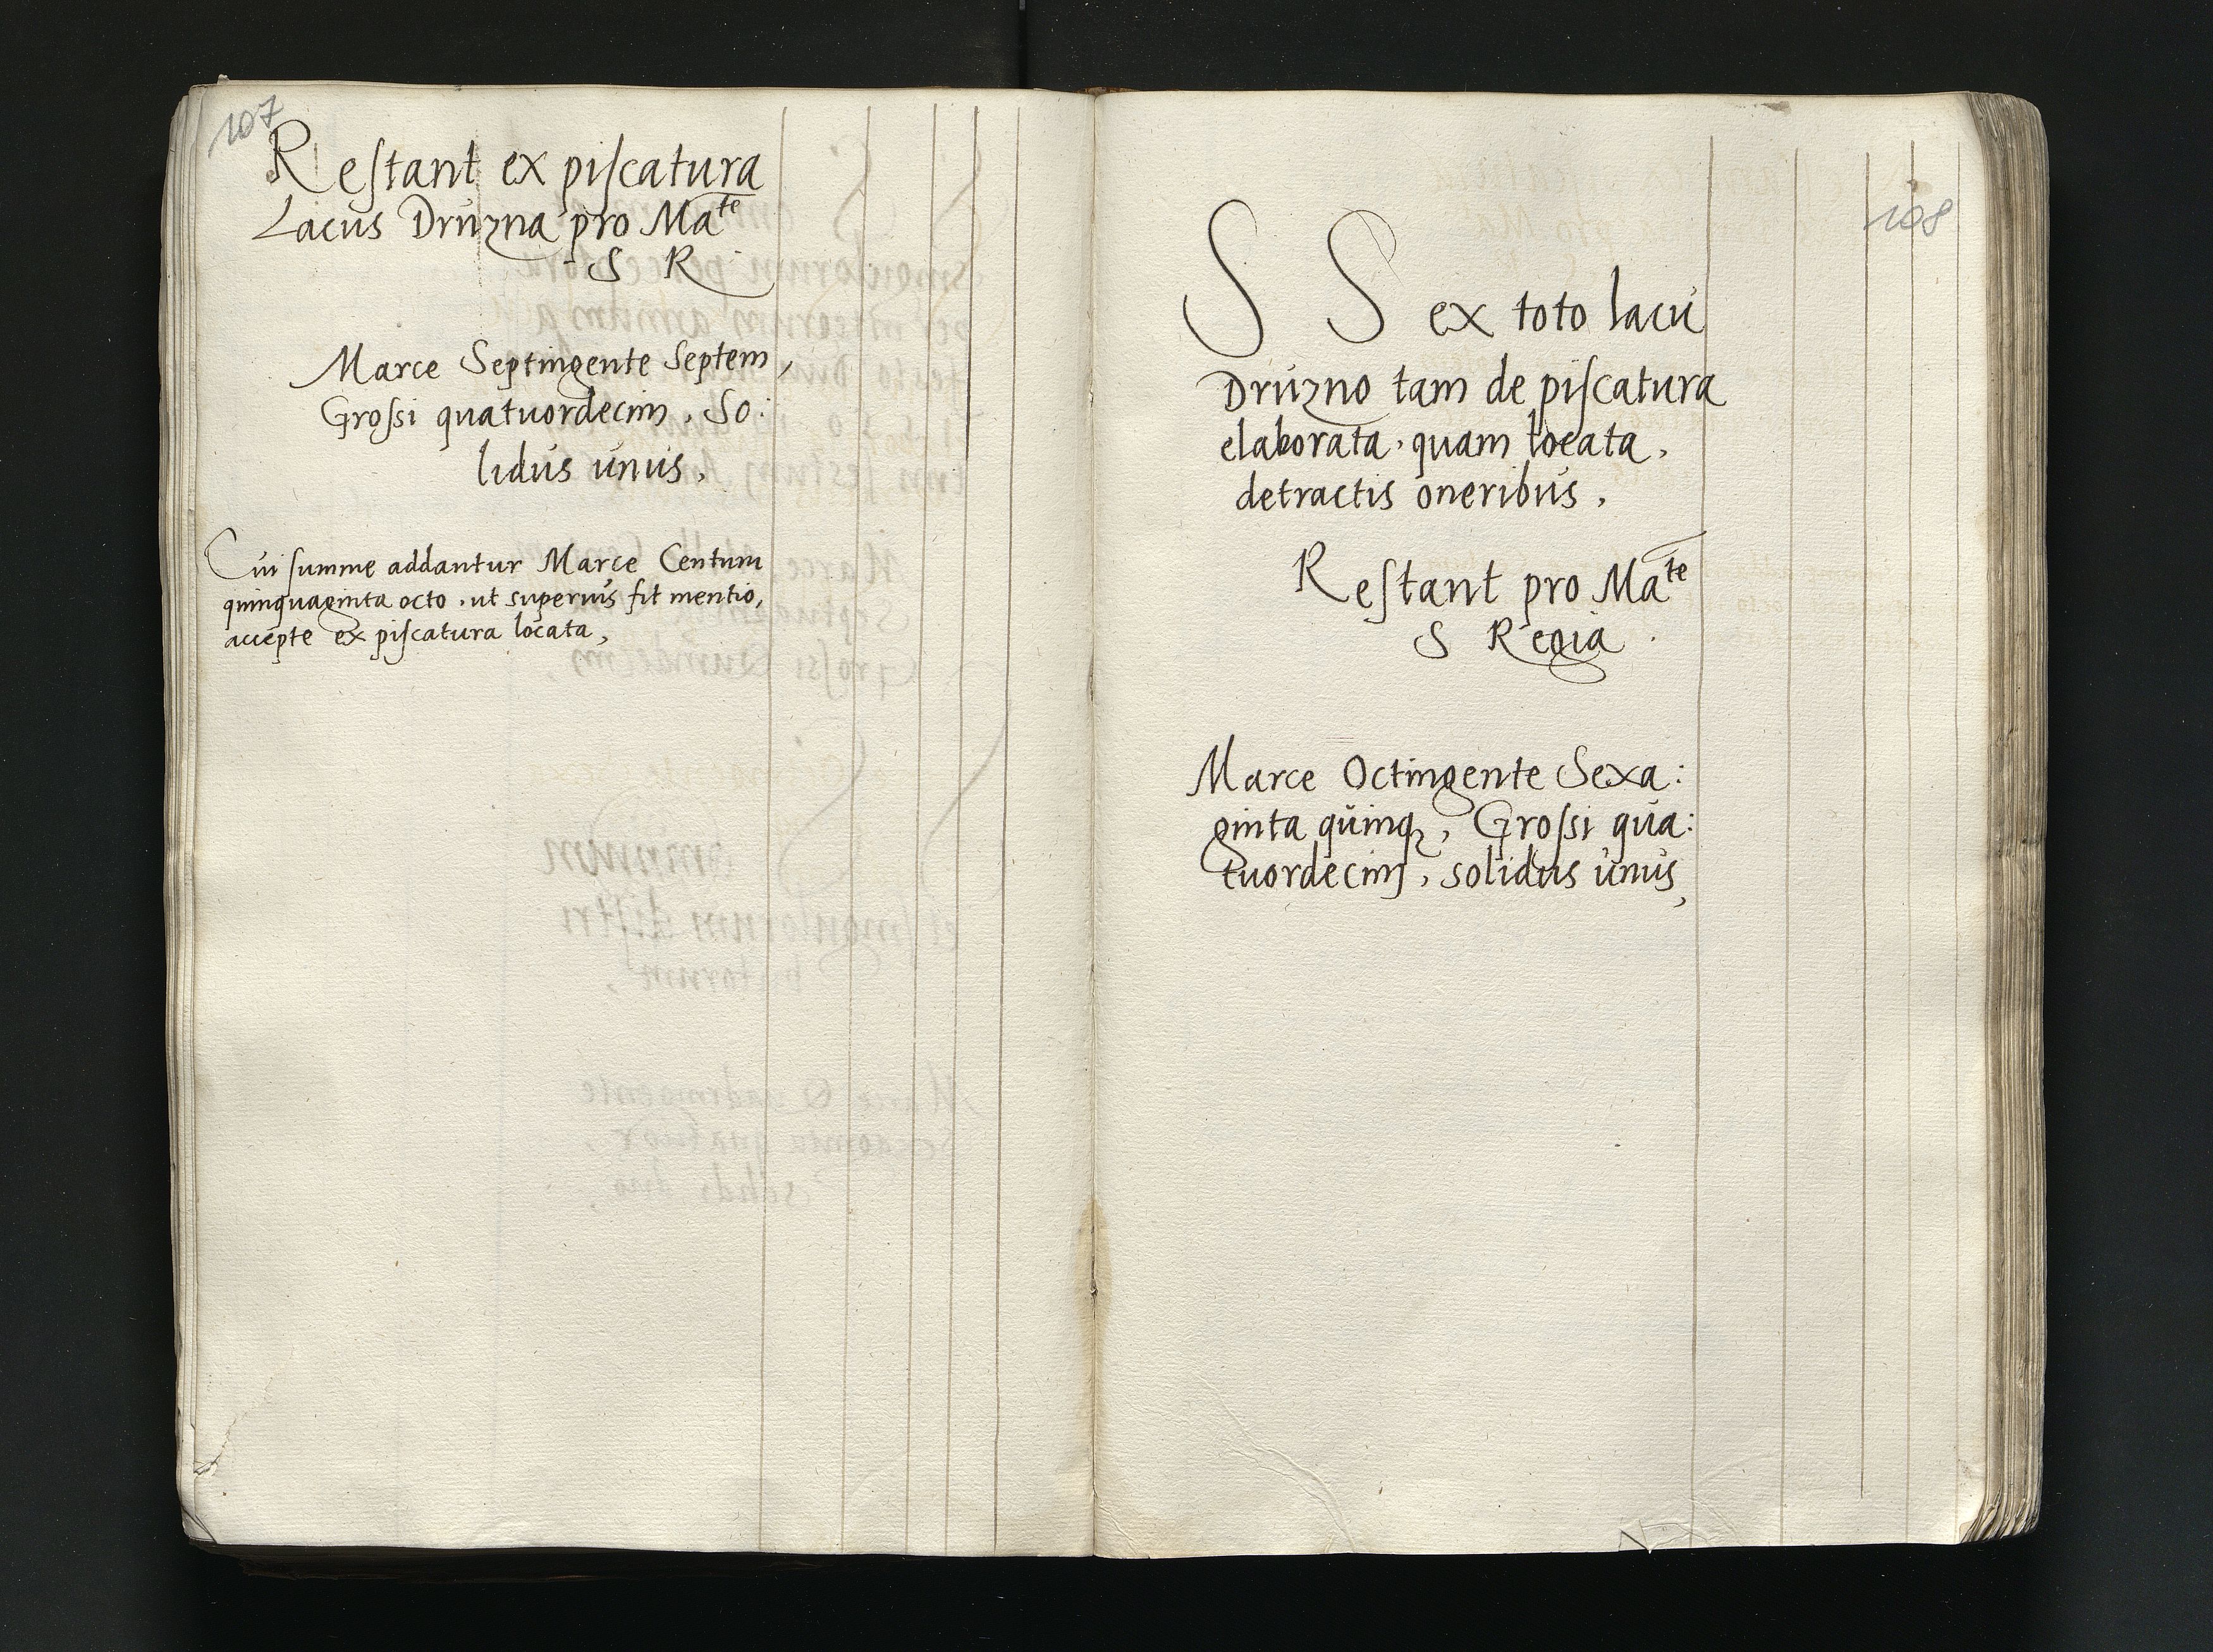 107
Restant ex piscatura
Lacus Druzna pro Ma^te
S R
Marce Septingente Septem,
Grossi quatuordecim, So:
lidus unus,
Cui summe addantur Marce Centum
quinquaginta octo, ut superius fit mentio,
accepte ex piscatura locata,
108
S S ex toto lacu
Druzno tam de piscatura
elaborata, quam locata,
detractis oneribus,
Restant pro Ma^te
S Regia
Marce Octingente Sexa:
ginta quinq, Grossi qua:
tuordecim, solidus unus,